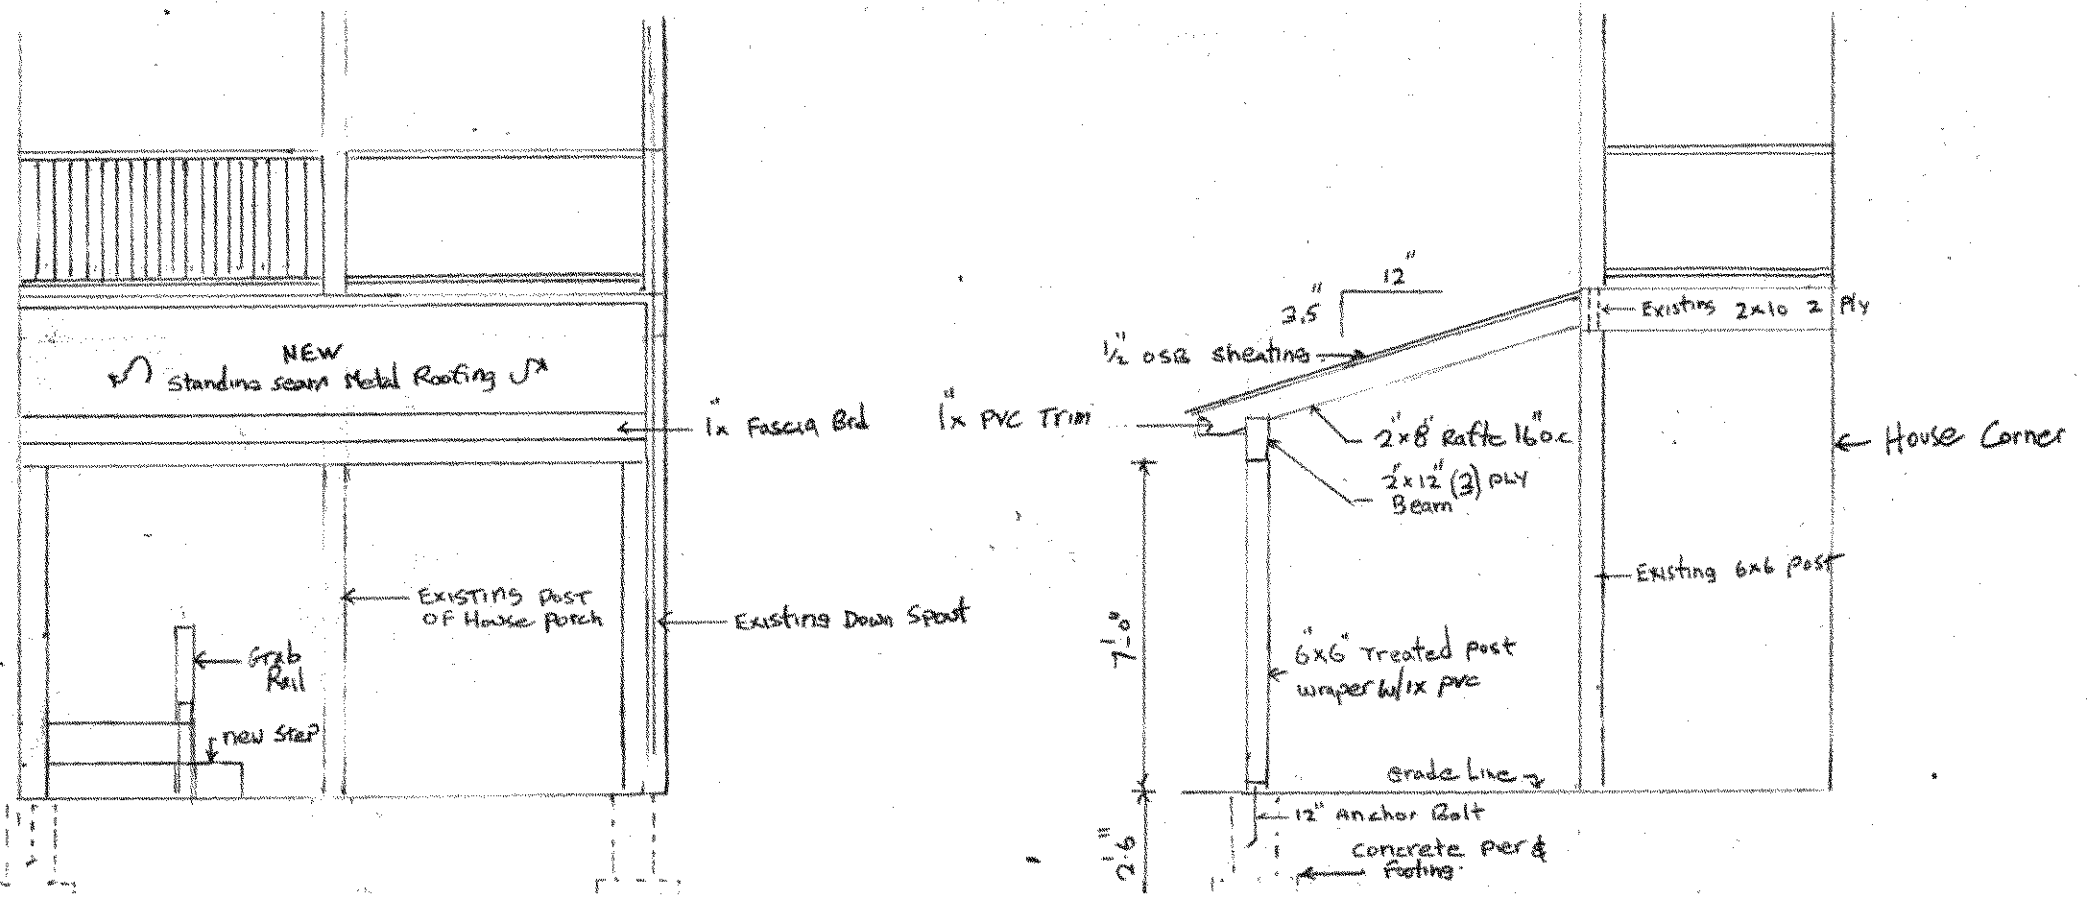 NEW
Standing seam Metal Roofing
1"x Fascia Brd
Existing post
of House porch
Existing Down Spout
Grab
Rail
new step
12"
3.5"
1/2" OSB sheating
1"x PVC Trim
2"x8" Rafte 16"o.c
2"x12" (3) PLY
Beam
Existing 2x10 2 Ply
House Corner
Existing 6x6 post
7'-0"
6"x6" Treated post
wraper w/1x pvc
Grade Line
12" Anchor Bolt
Concrete per &
footing
2'-6"